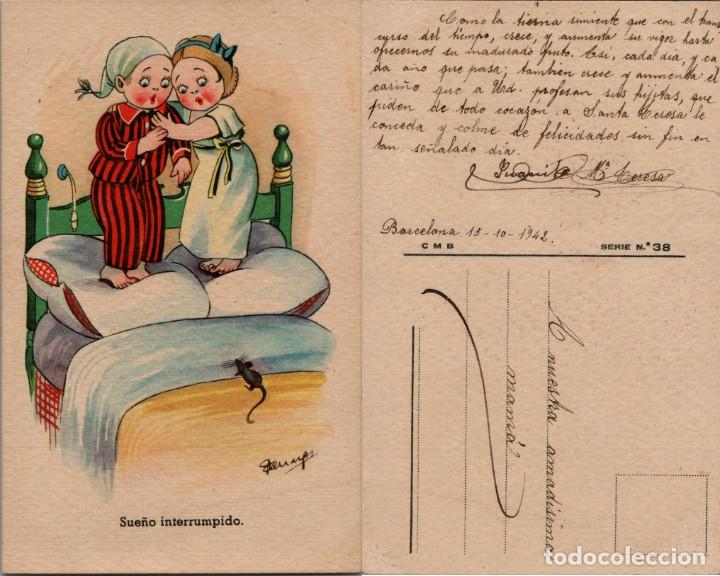 Sueño interrumpido.
Como la tierna simiente que con el trans-
curso del tiempo, crece, y aumenta su vigor hasta
ofrecernos su madurado fruto. Así, cada dia, y ca-
da año que pasa; tambien crece y aumenta el
cariño que a Urd. profesan sus hijitas, que
piden de todo corazón a Santa Teresa le
conceda y colme de felicidades sin fin en
tan señalado día.
Mª Teresa
Barcelona 15-10-1942.
CMB SERIE N.º 38
A nuestra amadísima
mamá
todocoleccion